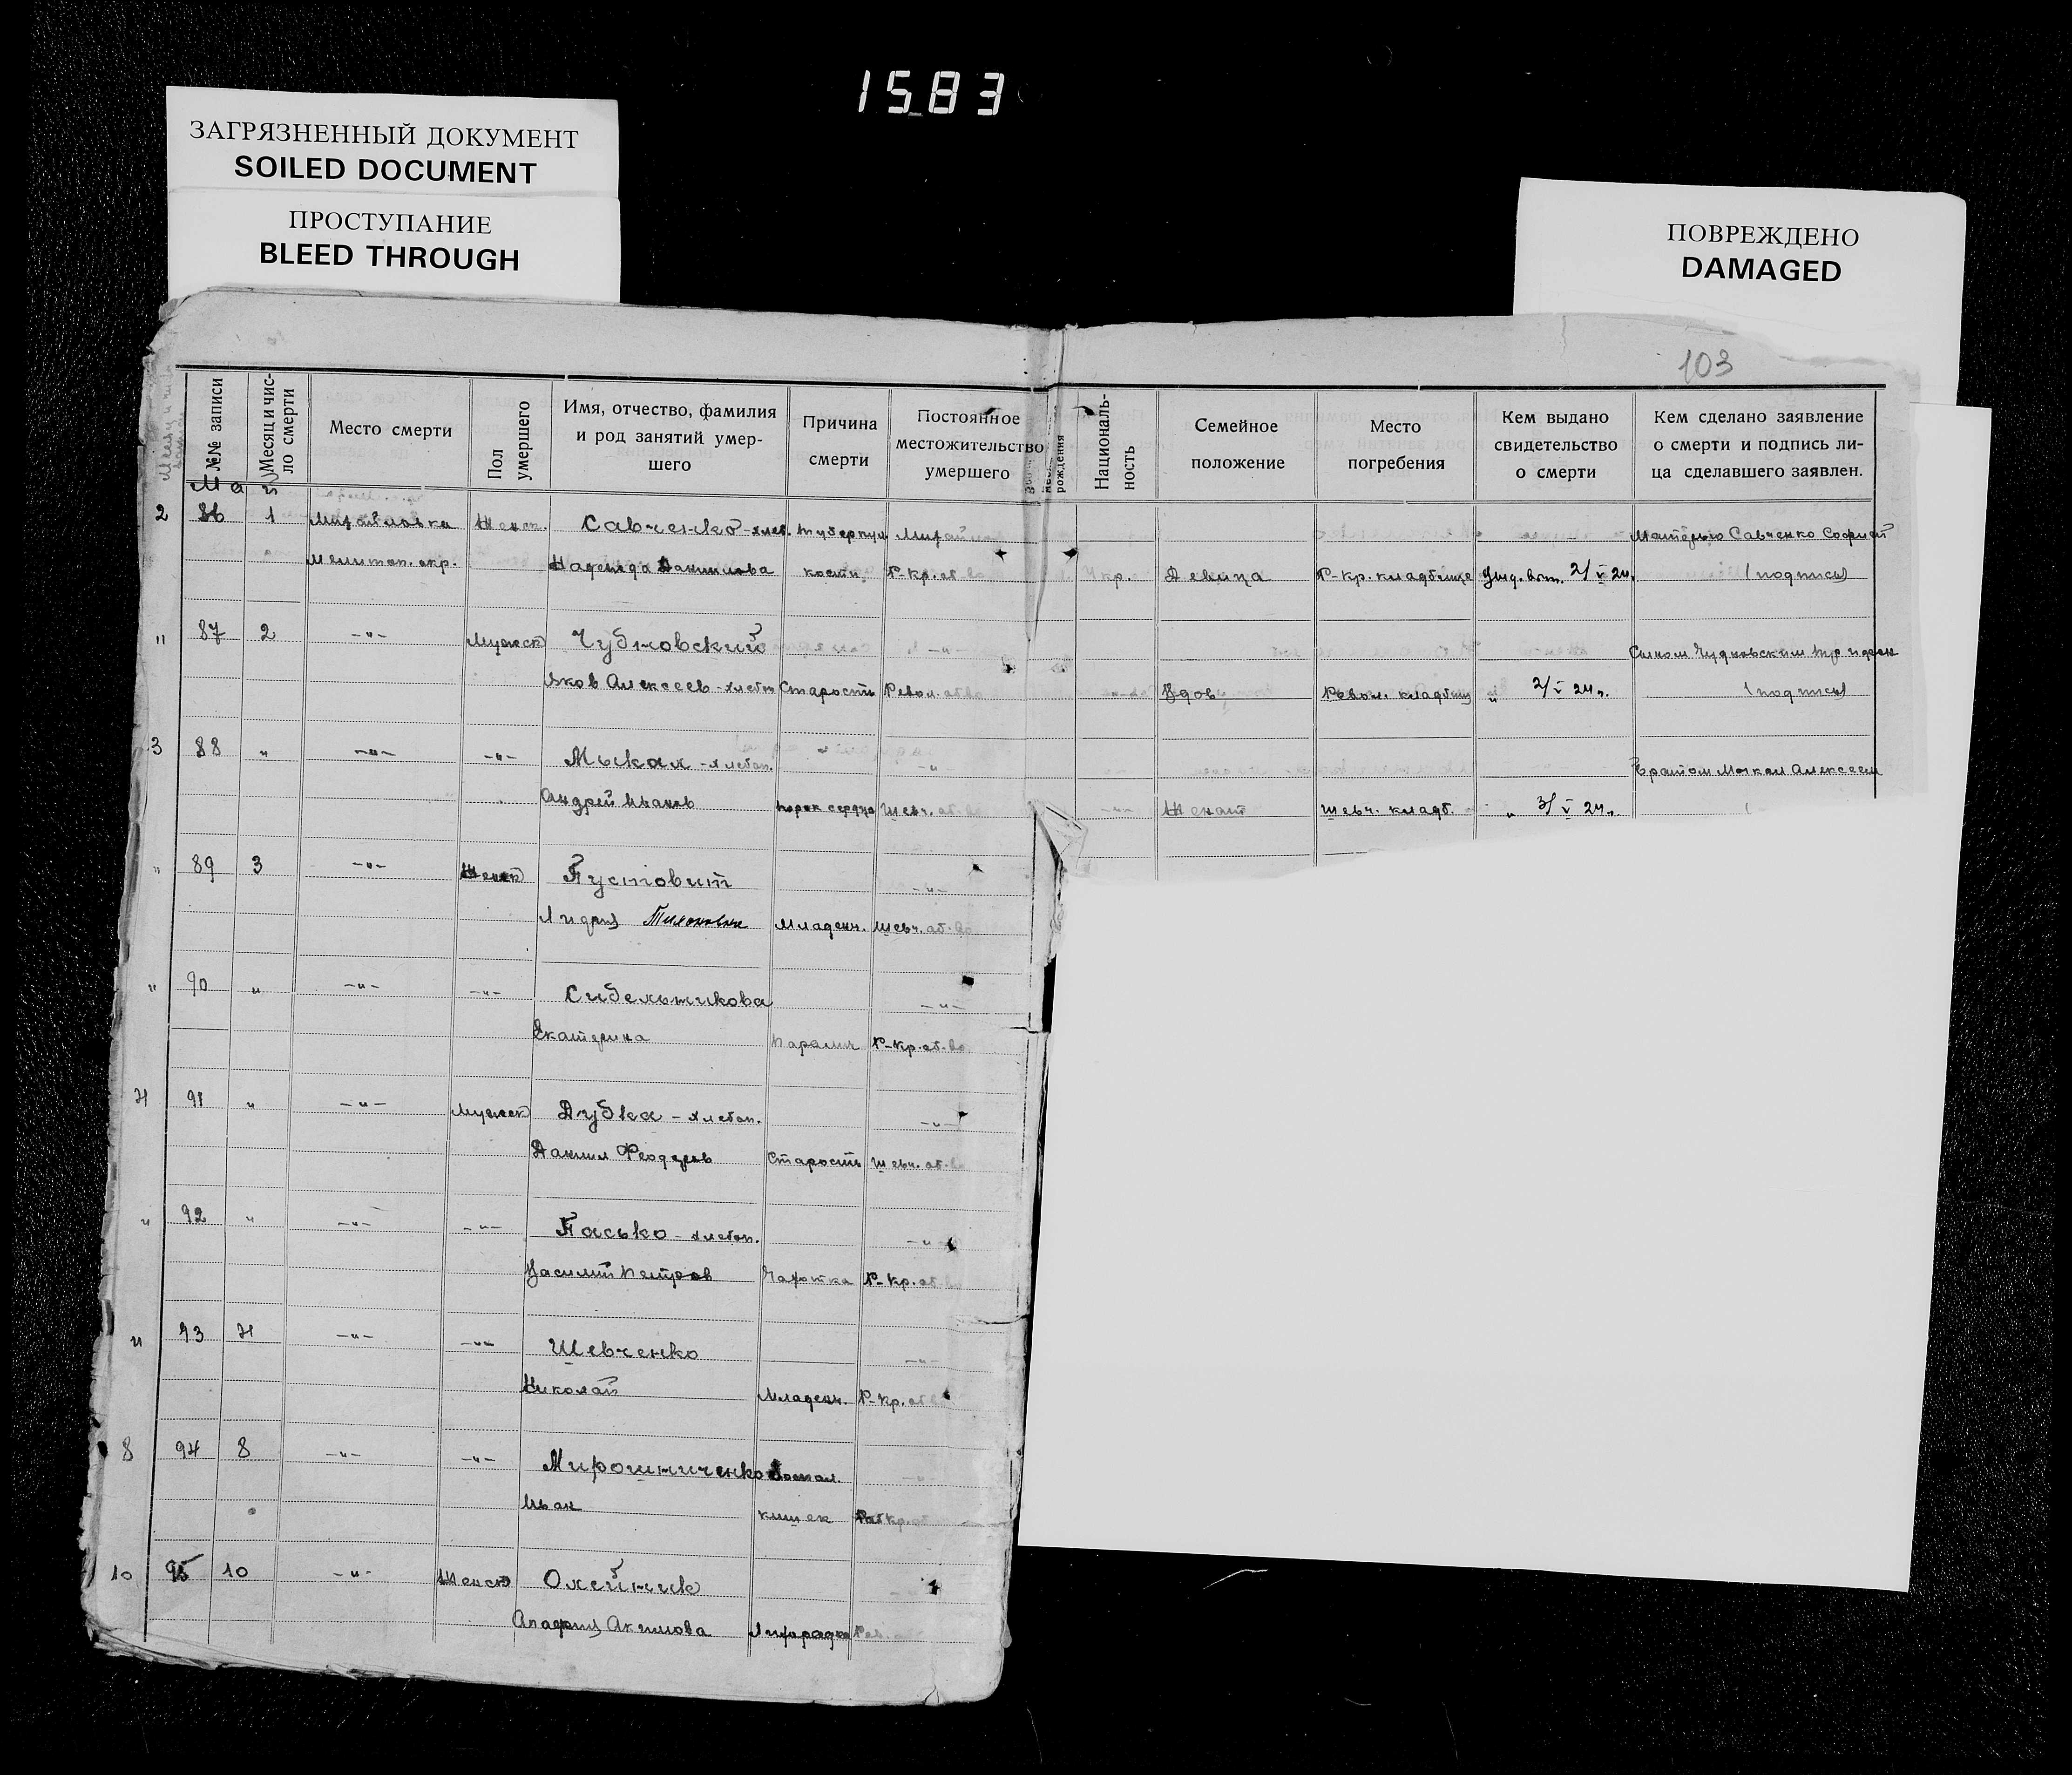 1583
ЗАГРЯЗНЕННЫЙ ДОКУМЕНТ
SOILED DOCUMENT
ПРОСТУПАНИЕ
BLEED THROUGH
ПОВРЕЖДЕНО
DAMAGED
103
№№ записи
Месяц и чис-
ло смерти
Место смерти
Пол
умершего
Имя, отчество, фамилия
и род занятий умер-
шего
Причина
смерти
Постоянное
местожительство
умершего
рождения
Националь-
ность
Семейное
положение
Место
погребения
Кем выдано
свидетельство
о смерти
Кем сделано заявление
о смерти и подпись ли-
ца сделавшего заявлен.
2 86 1 Михайловка Женск. Савченко-хлеб. туберкул Матерью Савченко Софией
Мелитоп. окр. Надежда Данилова кости Р-кр. об-во Укр. Девица Р-кр. кладбище 2/V 24. (подпись)
" 87 2 -"- Мужск Чубновский Сыном
Яков Алексеев-хлебоп Старость Револ. об-во -"- Вдов Револ. кладбищ " 2/V 24. (подпись)
3 88 " -"- -"- Мыкал-хлебоп. -"- Братом Мыкал Алексеем
Андрей Иванов порок сердца Шевч. об-во -"- Женат Шевч. кладб. " 3/V 24. (
" 89 3 -"- Женск Пустовит -"-
Лидия Тихоновна Младенч. Шевч. об-во
" 90 " -"- -"- Сидельникова -"-
Екатерина Паралич Р-кр. об-во
4 91 " -"- Мужск Дубка - хлебоп. -"-
Даниил Феодоров Старость Шевч. об-во
" 92 " -"- -"- Пасько - хлебоп. -"-
Василий Петров Чахотка Р-кр. об-во
" 93 4 -"- -"- Шевченко -"-
Николай Младенч. Р-кр. об-во
8 94 8 -"- -"- Мирошниченко Воспал. -"-
Иван кишек
10 95 10 -"- Женск Олейник
Агафия Акимова Лихорадка Рев.